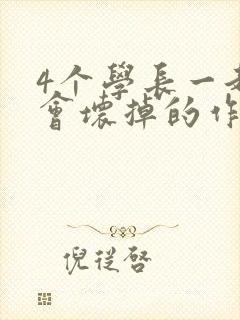 4个學長一
會壞掉的作
倪從啓